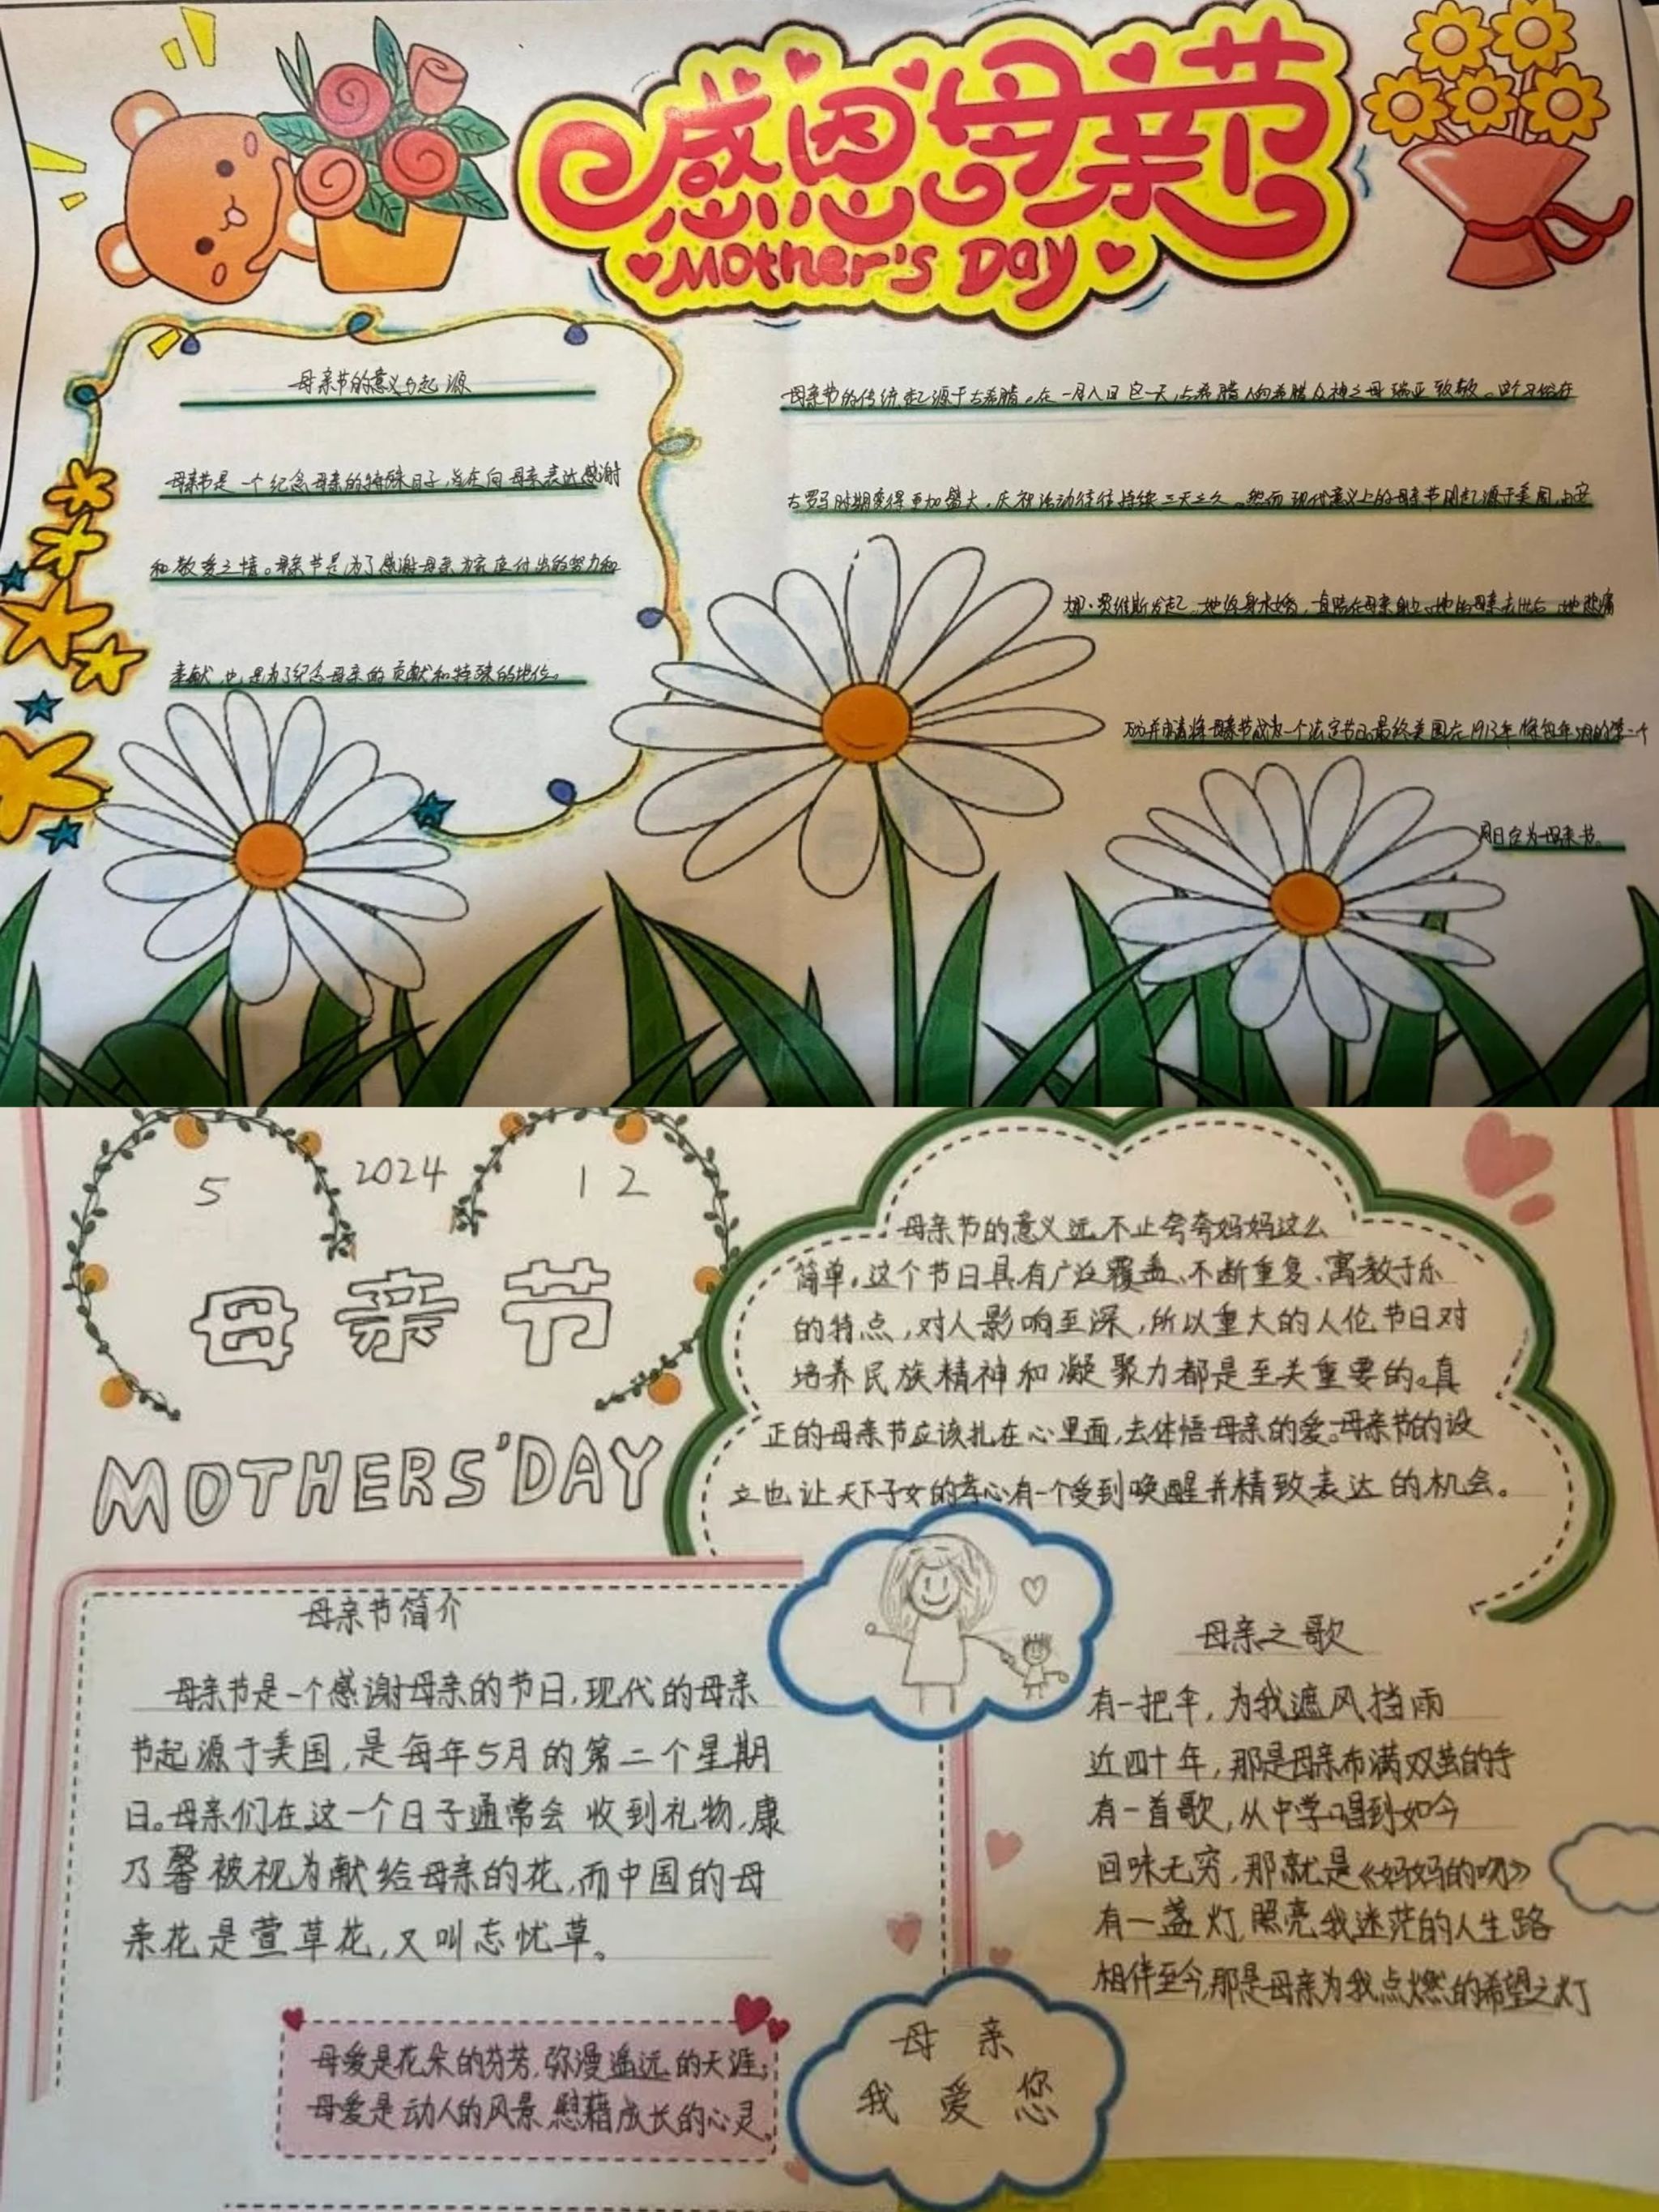 感恩母亲节
Mother's Day
母亲节的意义与起源
母亲节是一个纪念母亲的特殊日子,旨在向母亲表达感谢
和敬爱之情。母亲节是为了感谢母亲为家庭付出的努力和
奉献,也是为了纪念母亲的贡献和特殊的地位。
母亲节的传统起源于古希腊。在一月八日这一天,古希腊人向希腊众神之母瑞亚致敬。这个习俗在
古罗马时期变得更加盛大,庆祝活动往往持续三天之久。然而现代意义上的母亲节则起源于美国,由安
娜·贾维斯发起。她终身未婚,一直陪在母亲身边。她的母亲去世后,她悲痛
万分并申请将母亲节成为一个法定节日。最终美国在1913年将每年5月的第二个
周日定为母亲节。
5 2024 12
母亲节
MOTHERS'DAY
母亲节的意义远不止夸夸妈妈这么
简单,这个节日具有广泛覆盖、不断重复、寓教于乐
的特点,对人影响至深,所以重大的人伦节日对
培养民族精神和凝聚力都是至关重要的。真
正的母亲节应该扎在心里面,去体悟母亲的爱。母亲节的设
立也让天下子女的孝心有一个受到唤醒并精致表达的机会。
母亲节简介
母亲节是一个感谢母亲的节日,现代的母亲
节起源于美国,是每年5月的第二个星期
日。母亲们在这一个日子通常会收到礼物,康
乃馨被视为献给母亲的花,而中国的母
亲花是萱草花,又叫忘忧草。
母爱是花朵的芬芳,弥漫遥远的天涯;
母爱是动人的风景,慰藉成长的心灵。
母亲之歌
有一把伞,为我遮风挡雨
近四十年,那是母亲布满双茧的手
有一首歌,从中学唱到如今
回味无穷,那就是《妈妈的吻》
有一盏灯,照亮我迷茫的人生路
相伴至今,那是母亲为我点燃的希望之灯
母亲
我爱您